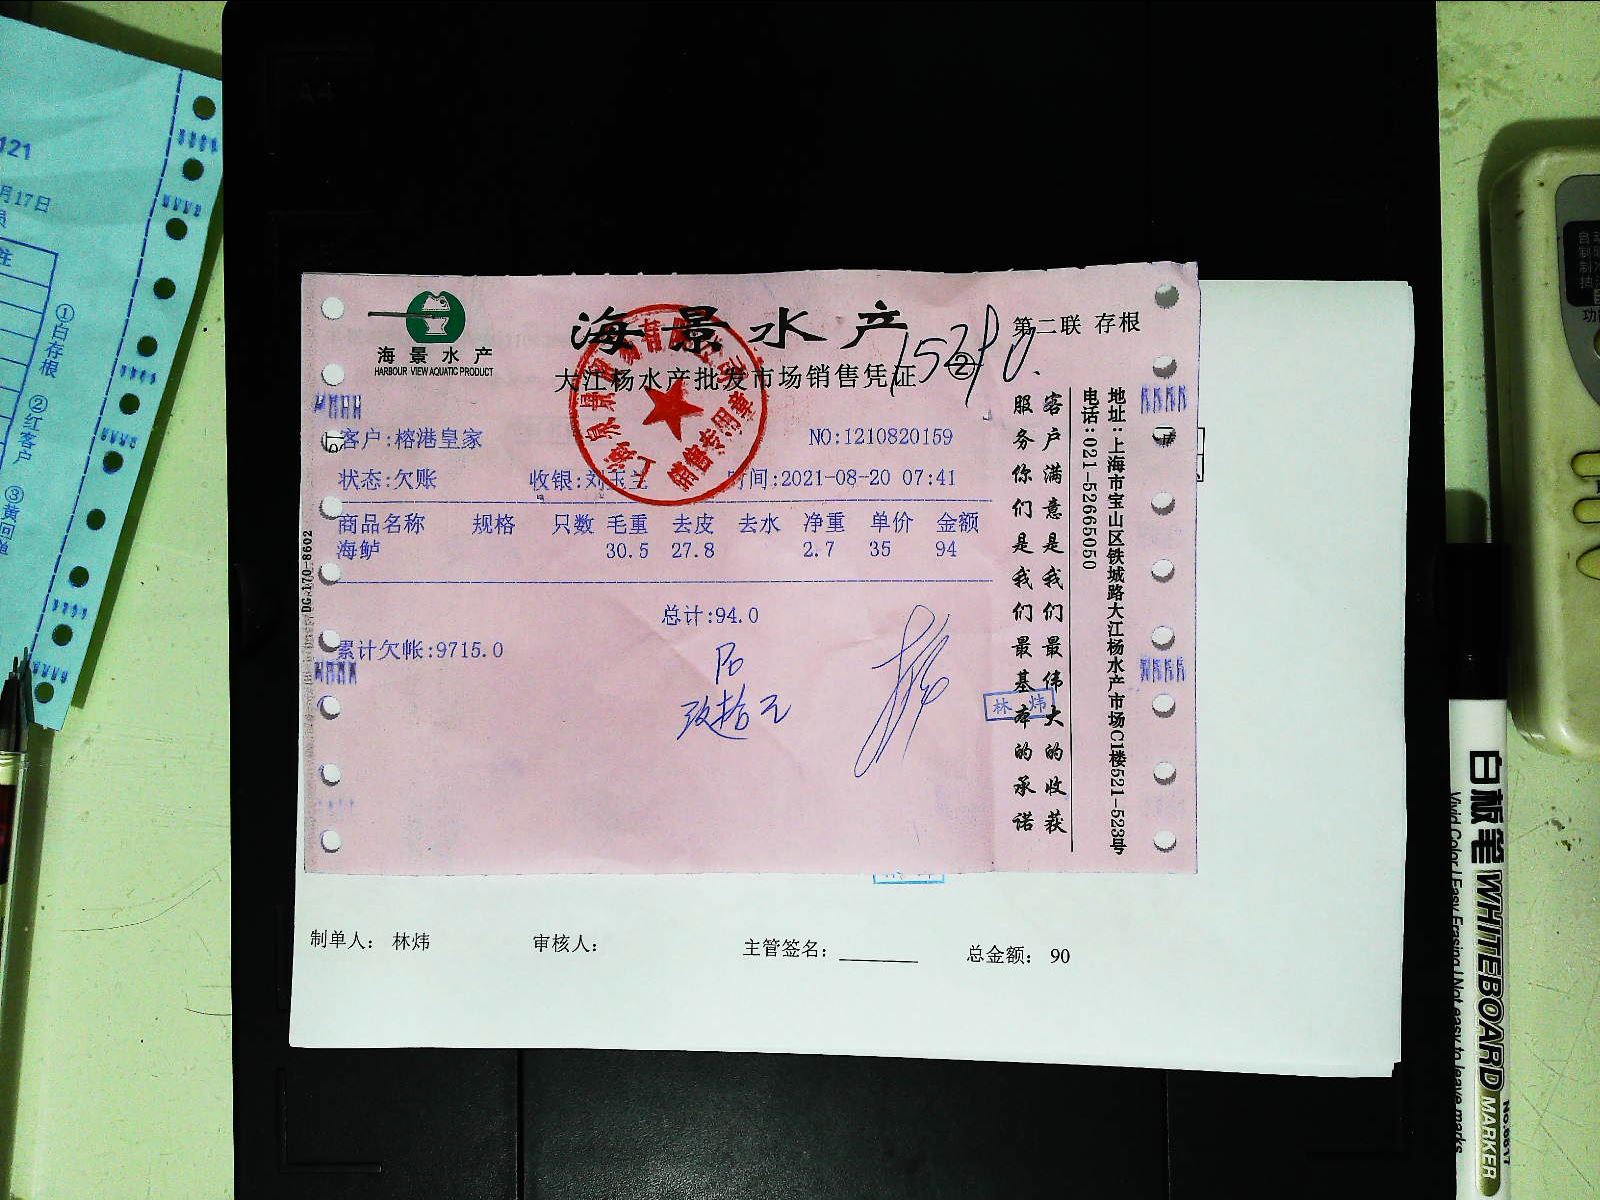 121
月17日
员
注
①白存根
②红客户
③黄回单
海景水产
HARBOUR VIEW AQUATIC PRODUCT
海景水产
第二联 存根
大江杨水产批发市场销售凭证
②
客户:榕港皇家
NO:1210820159
状态:欠账
收银:刘玉兰
时间:2021-08-20 07:41
商品名称 规格 只数 毛重 去皮 去水 净重 单价 金额
海鲈 30.5 27.8 2.7 35 94
总计:94.0
累计欠帐:9715.0
玖拾元
客户满意是我们最伟大的收获
服务你们是我们最基本的承诺
地址:上海市宝山区铁城路大江杨水产市场C1楼521-523号
电话:021-52665050
DG-170-8602
销售专用章
林炜
制单人: 林炜
审核人:
主管签名:
总金额: 90
白板笔 WHITEBOARD MARKER